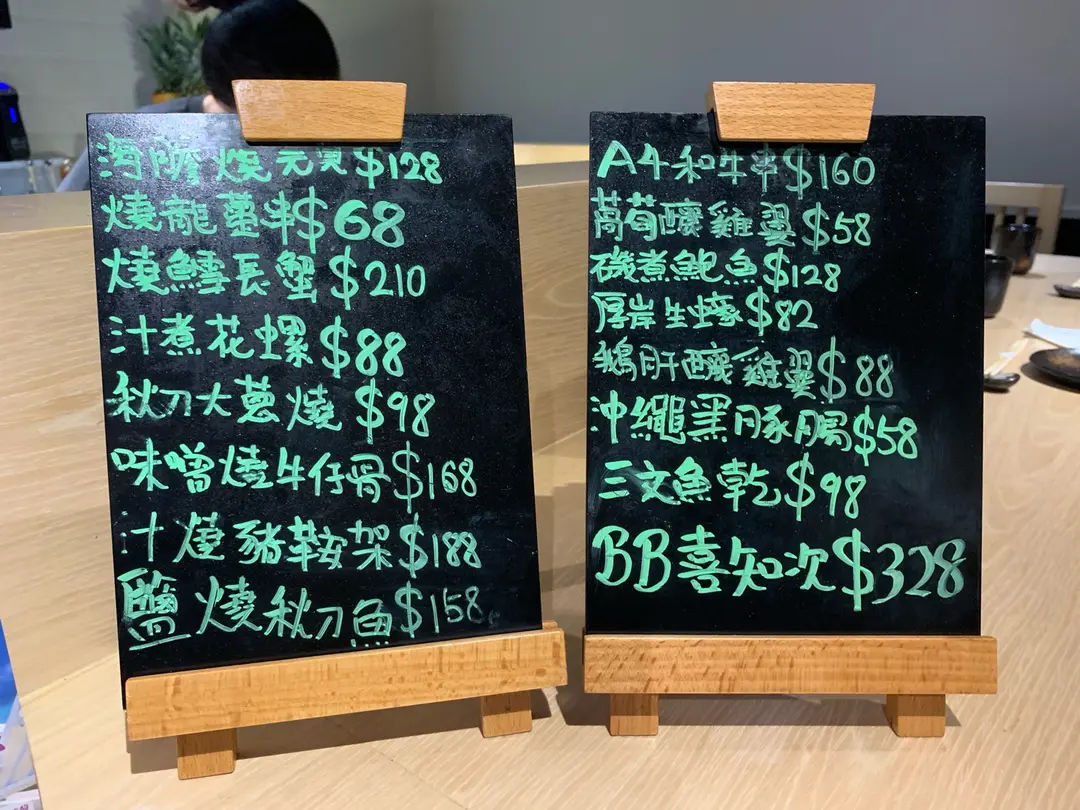 海膽燒元貝 $128
燒龍躉串 $68
燒鱈長蟹 $210
汁煮花螺 $88
秋刀大葱燒 $98
味噌燒牛仔骨 $168
汁燒豬鞍架 $188
鹽燒秋刀魚 $158
A4和牛串 $160
釀雞翼 $58
磯煮鮑魚 $128
厚岸生蠔 $82
鵝肝釀雞翼 $88
沖繩黑豚腸 $58
三文魚乾 $98
BB喜知次 $328